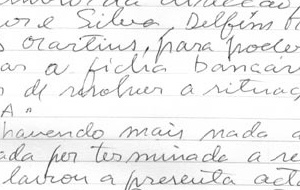 da direcção
e Silva, Delfim
Martins, para poder
as a ficha bancár
s de resolver a situaç
A"
havendo mais nada a
ada por terminada a re
lavrou a presente act